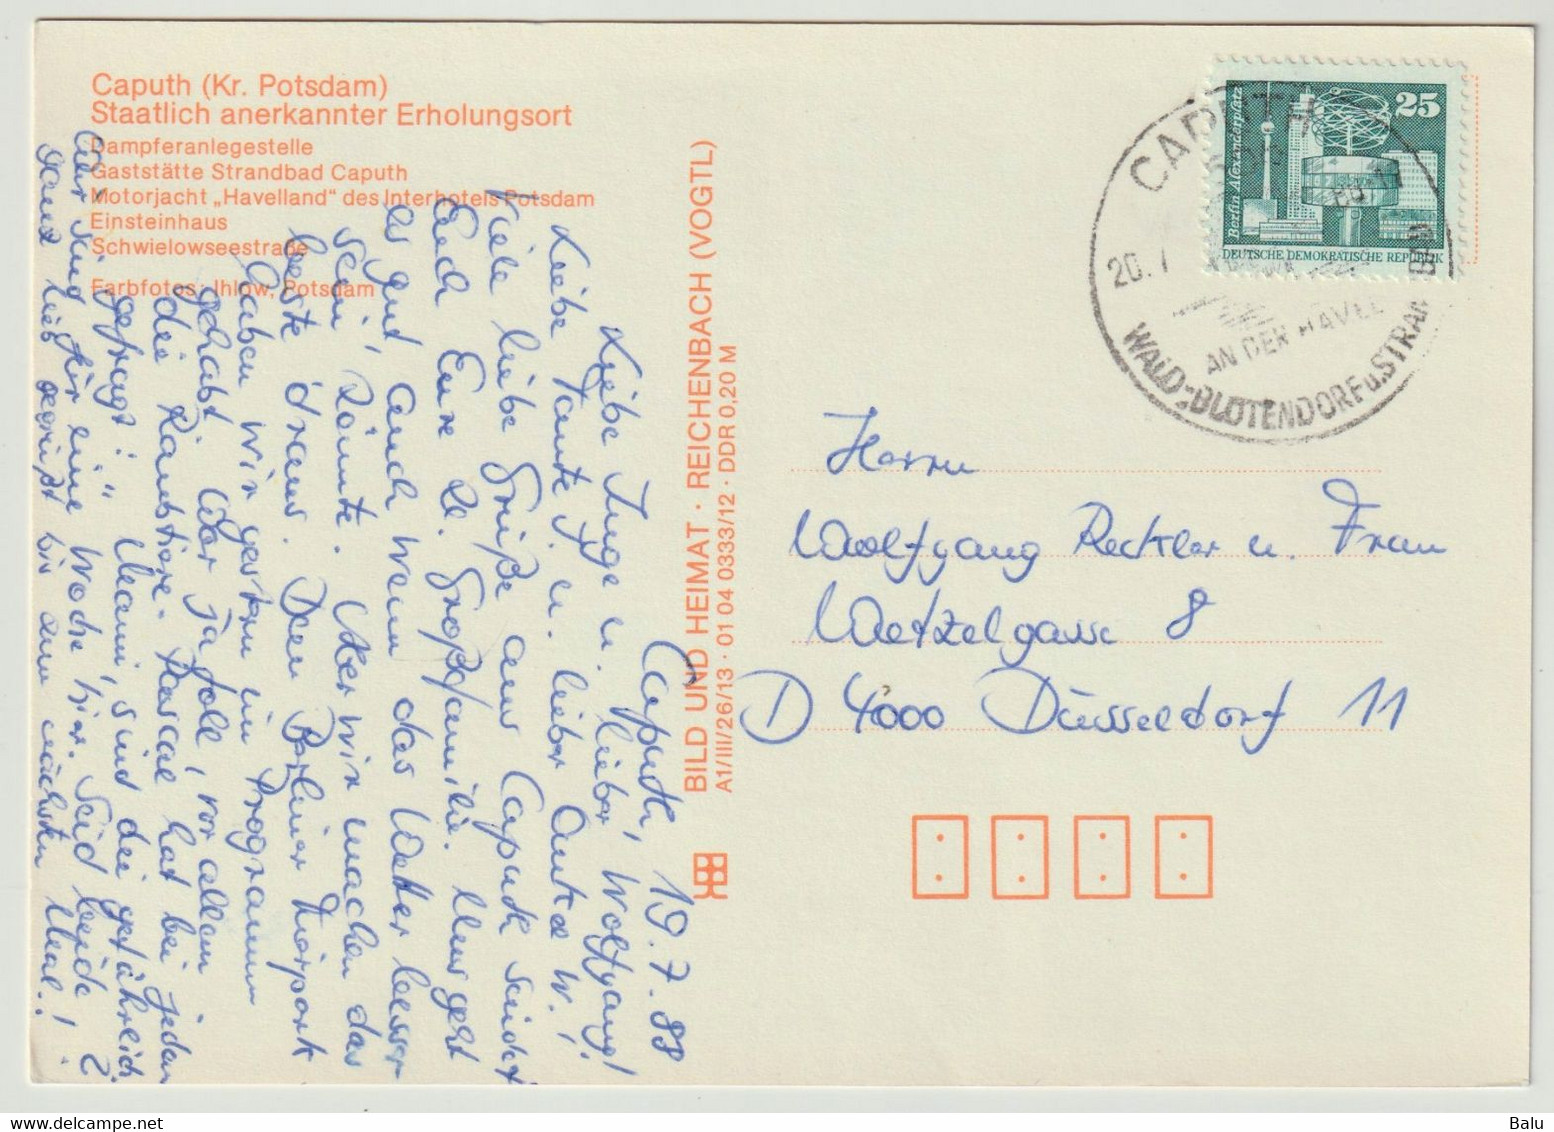 Caputh (Kr. Potsdam)
Staatlich anerkannter Erholungsort
Dampferanlegestelle
Gaststätte Strandbad Caputh
Motorjacht „Havelland" des Interhotels Potsdam
Einsteinhaus
Schwielowseestraße
Farbfotos: Ihlow, Potsdam
Caputh, 19.7.88
Liebe Inge u. lieber Wolfgang!
Liebe Tante J. u. lieber Onkel W.!
Viele liebe Grüße aus Caputh sendet
Euch Eure Großfamilie. Uns geht
es gut, auch wenn das Wetter besser
sein könnte. Aber wir machen das
beste draus. Den Berliner Tierpark
haben wir gestern im Programm
gehabt. War ja toll, vor allem
die Raubtiere. Pascal hat bei jedem
gefragt: "Mami, sind die gefährlich?
Wir sind für eine Woche hier. Seid beide
ganz lieb gegrüßt bis zum nächsten Mal!
BILD UND HEIMAT · REICHENBACH (VOGTL)
A1/III/26/13 · 01 04 0333/12 · DDR 0,20 M
Berlin-Alexanderplatz
25
DEUTSCHE DEMOKRATISCHE REPUBLIK
CAPUTH
20.7
AN DER HAVEL
WALD-BLÜTENDORF u. STRANDBAD
Herrn
Wolfgang Reckler u. Frau
Wetzelgasse 8
D 4000 Düsseldorf 11
Balu